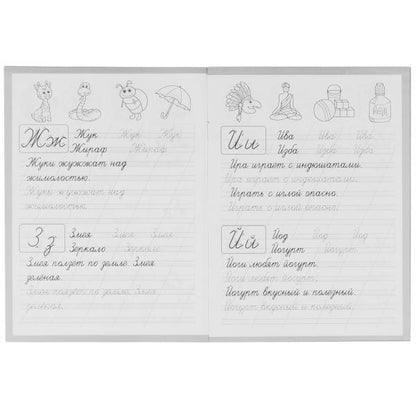 Жж Жук Жук Жук
Жираф Жираф
Жуки жужжат над
жимолостью.
Жуки жужжат над
жимолостью.
Зз Змея Змея Змея
Зеркало Зеркало
Змея ползет по земле. Змея
зеленая.
Змея ползет по земле. Змея
зеленая.
Ии Ива Ива Ива
Изба Изба Изба
Ира играет с индюшатами.
Ира играет с индюшатами.
Играть с иглой опасно.
Играть с иглой опасно.
Йй Йод Йод Йод
Йогурт Йогурт
Йоги любят йогурт.
Йоги любят йогурт.
Йогурт вкусный и полезный.
Йогурт вкусный и полезный.